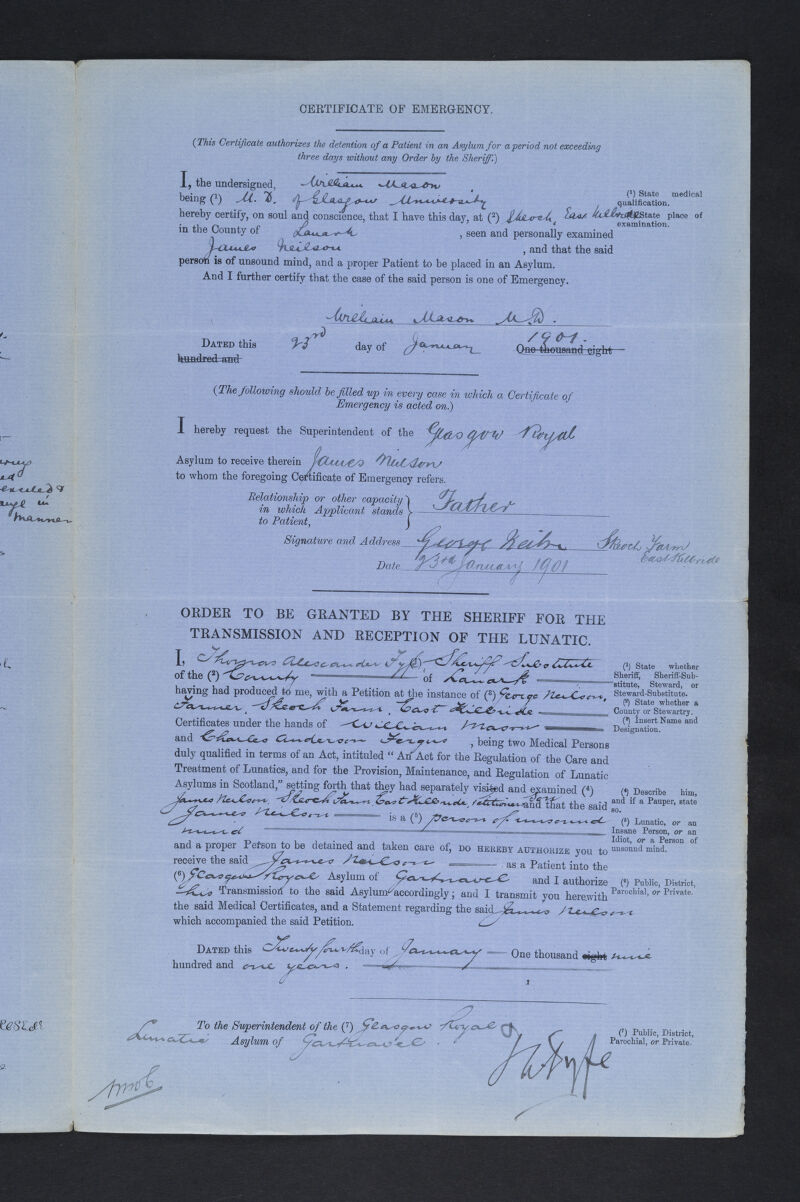 CERTIFICATE OF EMERGENCY.
(This Certificate authorizes the detention of a Patient in an Asylum for a period not exceeding
three days without any Order by the Sheriff.)
I, the undersigned, William Mason
being (¹) M. D. of Glasgow University
(¹) State medical
qualification.
hereby certify, on soul and conscience, that I have this day, at (²) Skeoch, East Kilbride
State place of
examination.
in the County of Lanark , seen and personally examined
James Neilson , and that the said
person is of unsound mind, and a proper Patient to be placed in an Asylum.
And I further certify that the case of the said person is one of Emergency.
William Mason M.D.
DATED this 23rd day of January 1901. One thousand eight
hundred and
(The following should be filled up in every case in which a Certificate of
Emergency is acted on.)
I hereby request the Superintendent of the Glasgow Royal
Asylum to receive therein James Neilson
to whom the foregoing Certificate of Emergency refers.
Relationship or other capacity
in which Applicant stands
to Patient, Father
Signature and Address George Neilson Skeoch Farm
East Kilbride
Date 23rd January 1901
ORDER TO BE GRANTED BY THE SHERIFF FOR THE
TRANSMISSION AND RECEPTION OF THE LUNATIC.
I, Thomas Alexander Fyfe Sheriff Substitute
of the (²) County of Lanark
having had produced to me, with a Petition at the instance of (³) George Neilson,
Farmer, Skeoch Farm, East Kilbride
Certificates under the hands of William Mason
and Charles Anderson Fergus , being two Medical Persons
duly qualified in terms of an Act, intituled "An Act for the Regulation of the Care and
Treatment of Lunatics, and for the Provision, Maintenance, and Regulation of Lunatic
Asylums in Scotland," setting forth that they had separately visited and examined (⁴)
James Neilson, Skeoch Farm East Kilbride, Petitioner's son and that the said
James Neilson is a (⁵) person of unsound
mind
and a proper Person to be detained and taken care of, DO HEREBY AUTHORIZE you to
receive the said James Neilson as a Patient into the
(⁶) Glasgow Royal Asylum of Gartnavel and I authorize
his Transmission to the said Asylum accordingly; and I transmit you herewith
the said Medical Certificates, and a Statement regarding the said James Neilson
which accompanied the said Petition.
(¹) State whether
Sheriff, Sheriff-Sub-
stitute, Steward, or
Steward-Substitute.
(²) State whether a
County or Stewartry.
(³) Insert Name and
Designation.
(⁴) Describe him,
and if a Pauper, state
so.
(⁵) Lunatic, or an
Insane Person, or an
Idiot, or a Person of
unsound mind.
(⁶) Public, District,
Parochial, or Private.
DATED this Twenty fourth day of January One thousand eight nine
hundred and one years.
To the Superintendent of the (⁷) Glasgow Royal
Lunatic Asylum of Gartnavel.
(⁷) Public, District,
Parochial, or Private.
T A Fyfe
manner